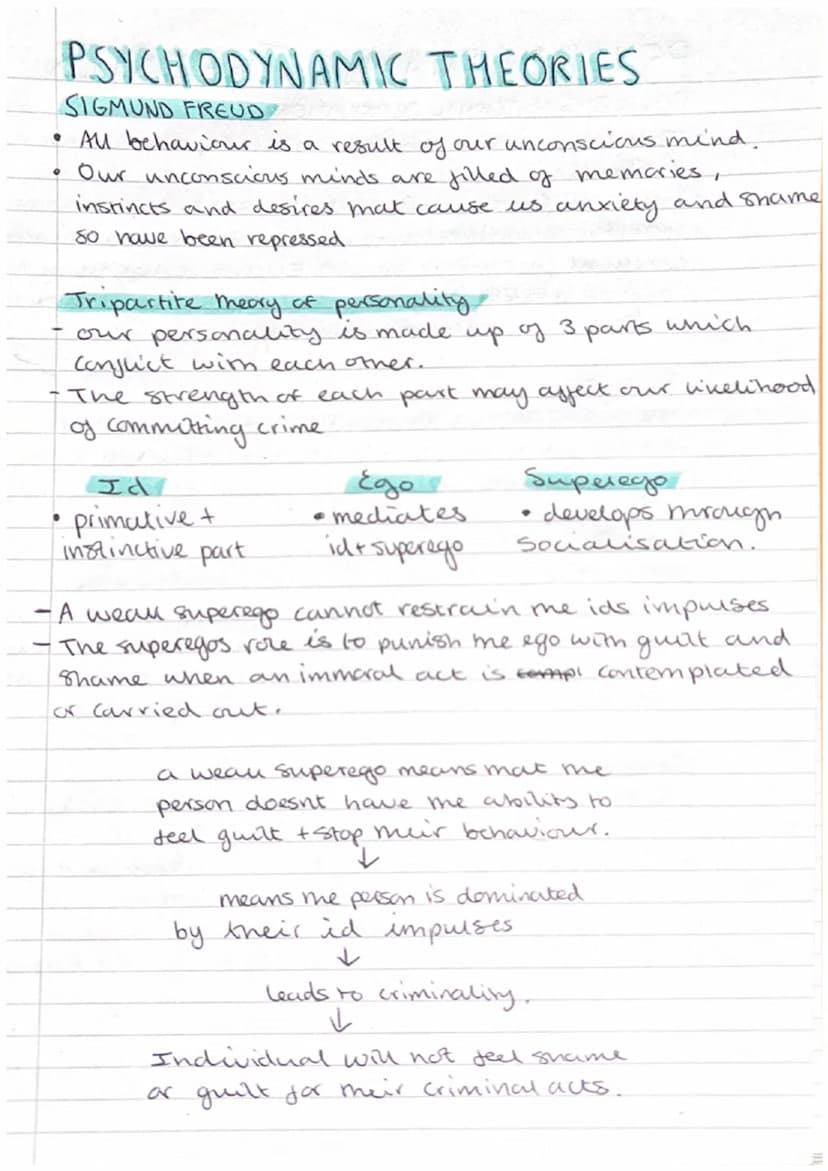 PSYCHODYNAMIC THEORIES
SIGMUND FREUD
• All behaviour is a result of our unconscious mind.
• Our unconscious minds are filled of memories,
instincts and desires that cause us anxiety and shame
so have been repressed
Tripartite theory of personality
- our personality is made up of 3 parts which
conflict with each other.
- The strength of each part may affect our likelihood
of committing crime
Id Ego Superego
• primative + • mediates • develops through
instinctive part id + superego socialisation.
- A weak superego cannot restrain the ids impulses
- The superegos role is to punish the ego with guilt and
shame when an immoral act is compl contemplated
or carried out.
a weak superego means that the
person doesnt have the ability to
feel guilt + stop their behaviour.
↓
means the person is dominated
by their id impulses
↓
leads to criminality.
↓
Individual will not feel shame
or guilt for their criminal acts.